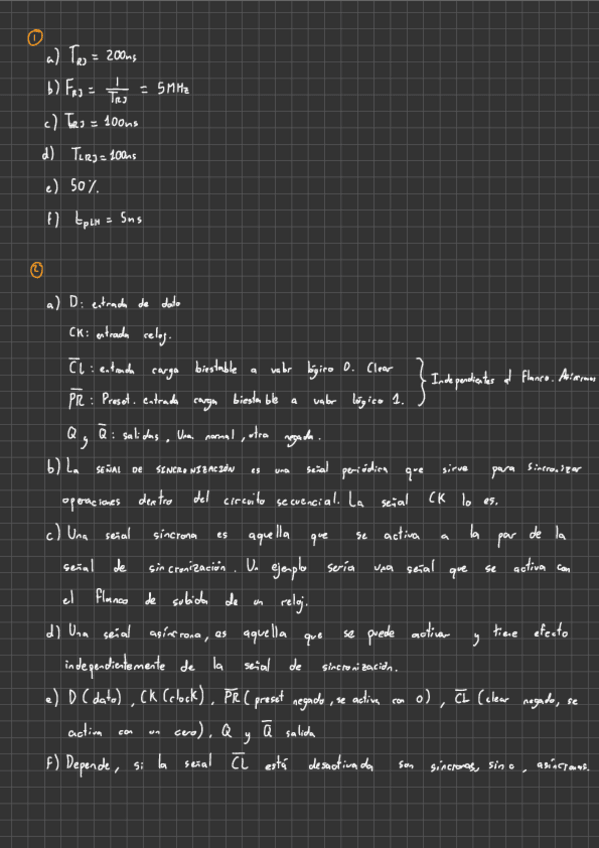 1
a) T_RJ = 200ns
b) F_RJ = 1/T_RJ = 5MHz
c) T_RJ = 100ns
d) T_LRJ = 100ns
e) 50%.
f) t_pLH = 5ns
2
a) D: entrada de dato
CK: entrada reloj.
C̅L̅: entrada carga biestable a valor lógico 0. Clear
P̅R̅: Preset. entrada carga biestable a valor lógico 1.
Independientes del Flanco. Asíncronas
Q y Q̅: salidas, una normal, otra negada.
b) La SEÑAL DE SINCRONIZACIÓN es una señal periódica que sirve para sincronizar
operaciones dentro del circuito secuencial. La señal CK lo es.
c) Una señal síncrona es aquella que se activa a la par de la
señal de sincronización. Un ejemplo sería una señal que se activa con
el flanco de subida de un reloj.
d) Una señal asíncrona, es aquella que se puede activar y tiene efecto
independientemente de la señal de sincronización.
e) D (dato), CK (clock), P̅R̅ (preset negado, se activa con 0), C̅L̅ (clear negado, se
activa con un cero), Q y Q̅ salida
F) Depende, si la señal C̅L̅ está desactivada son síncronas, sino, asíncronas.